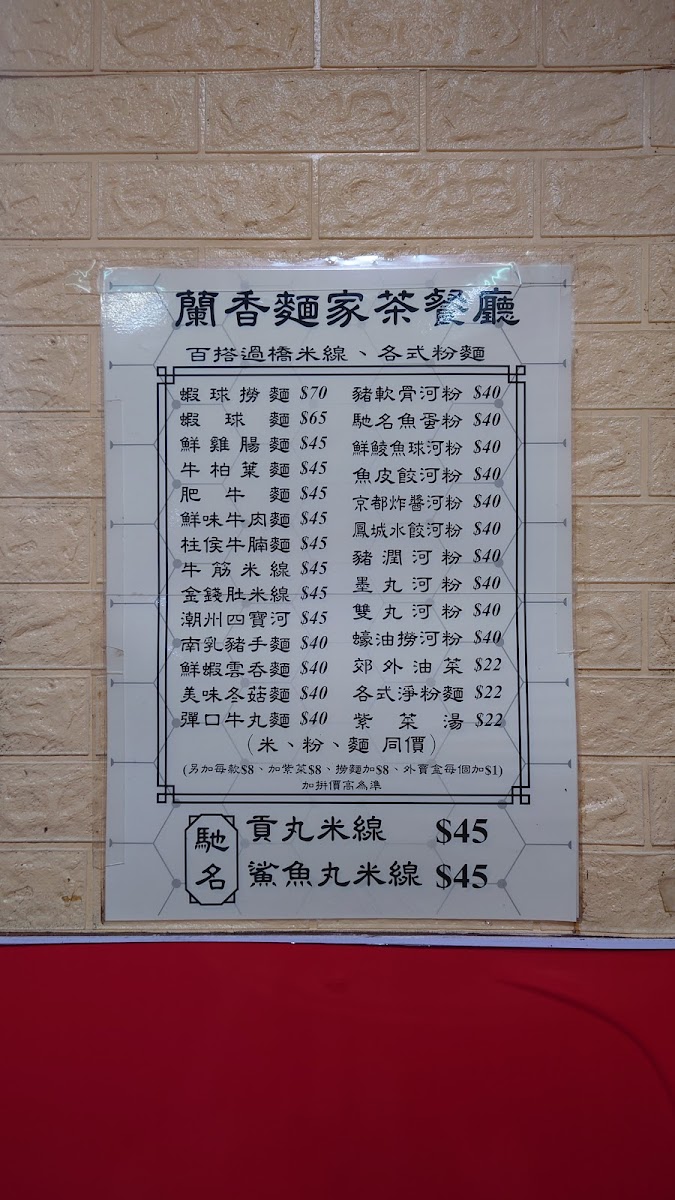 蘭香麵家茶餐廳
百搭過橋米線、各式粉麵
蝦球撈麵 $70
蝦球麵 $65
鮮雞腸麵 $45
牛柏葉麵 $45
肥牛麵 $45
鮮味牛肉麵 $45
柱侯牛腩麵 $45
牛筋米線 $45
金錢肚米線 $45
潮州四寶河 $45
南乳豬手麵 $40
鮮蝦雲吞麵 $40
美味冬菇麵 $40
彈口牛丸麵 $40
豬軟骨河粉 $40
馳名魚蛋粉 $40
鮮鯪魚球河粉 $40
魚皮餃河粉 $40
京都炸醬河粉 $40
鳳城水餃河粉 $40
豬潤河粉 $40
墨丸河粉 $40
雙丸河粉 $40
蠔油撈河粉 $40
郊外油菜 $22
各式淨粉麵 $22
紫菜湯 $22
(米、粉、麵 同價)
(另加每款$8、加紫菜$8、撈麵加$8、外賣盒每個加$1)
加拼價高為準
馳名
貢丸米線 $45
鯊魚丸米線 $45